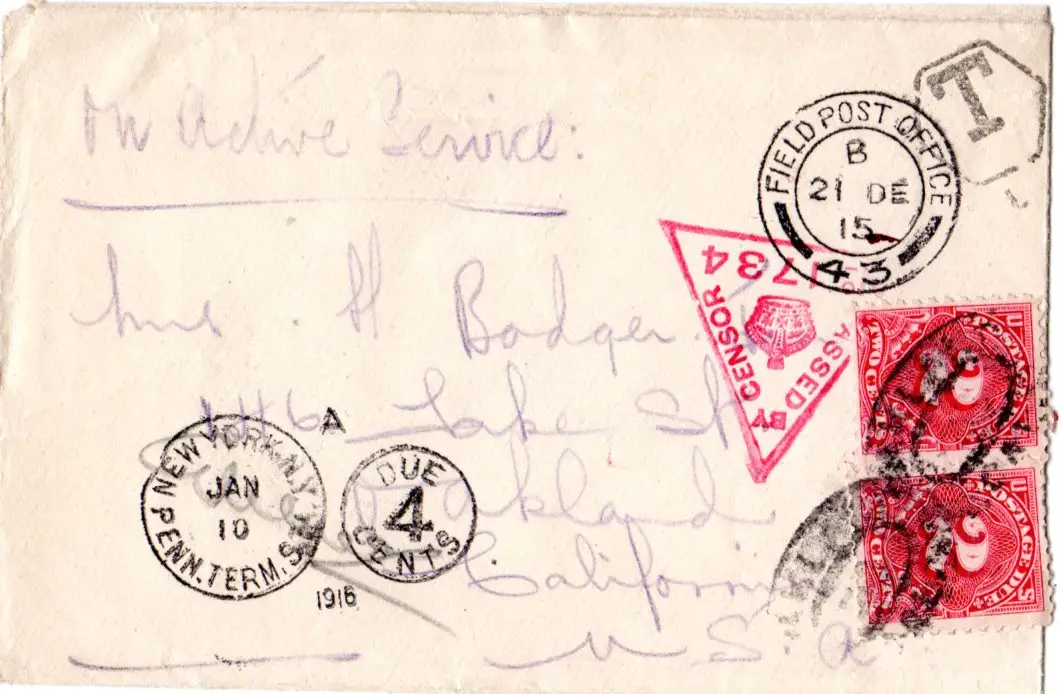 On Active Service:
T
FIELD POST OFFICE
B
21 DE
15
43
PASSED BY CENSOR
No 1734
Mrs H Badger
1416 Lake St
Oakland
California
U.S.A
A
NEW YORK, N.Y.
JAN
10
PENN. TERM. STA.
1916
DUE
4
CENTS
POSTAGE DUE
2
TWO CENTS
POSTAGE DUE
2
TWO CENTS